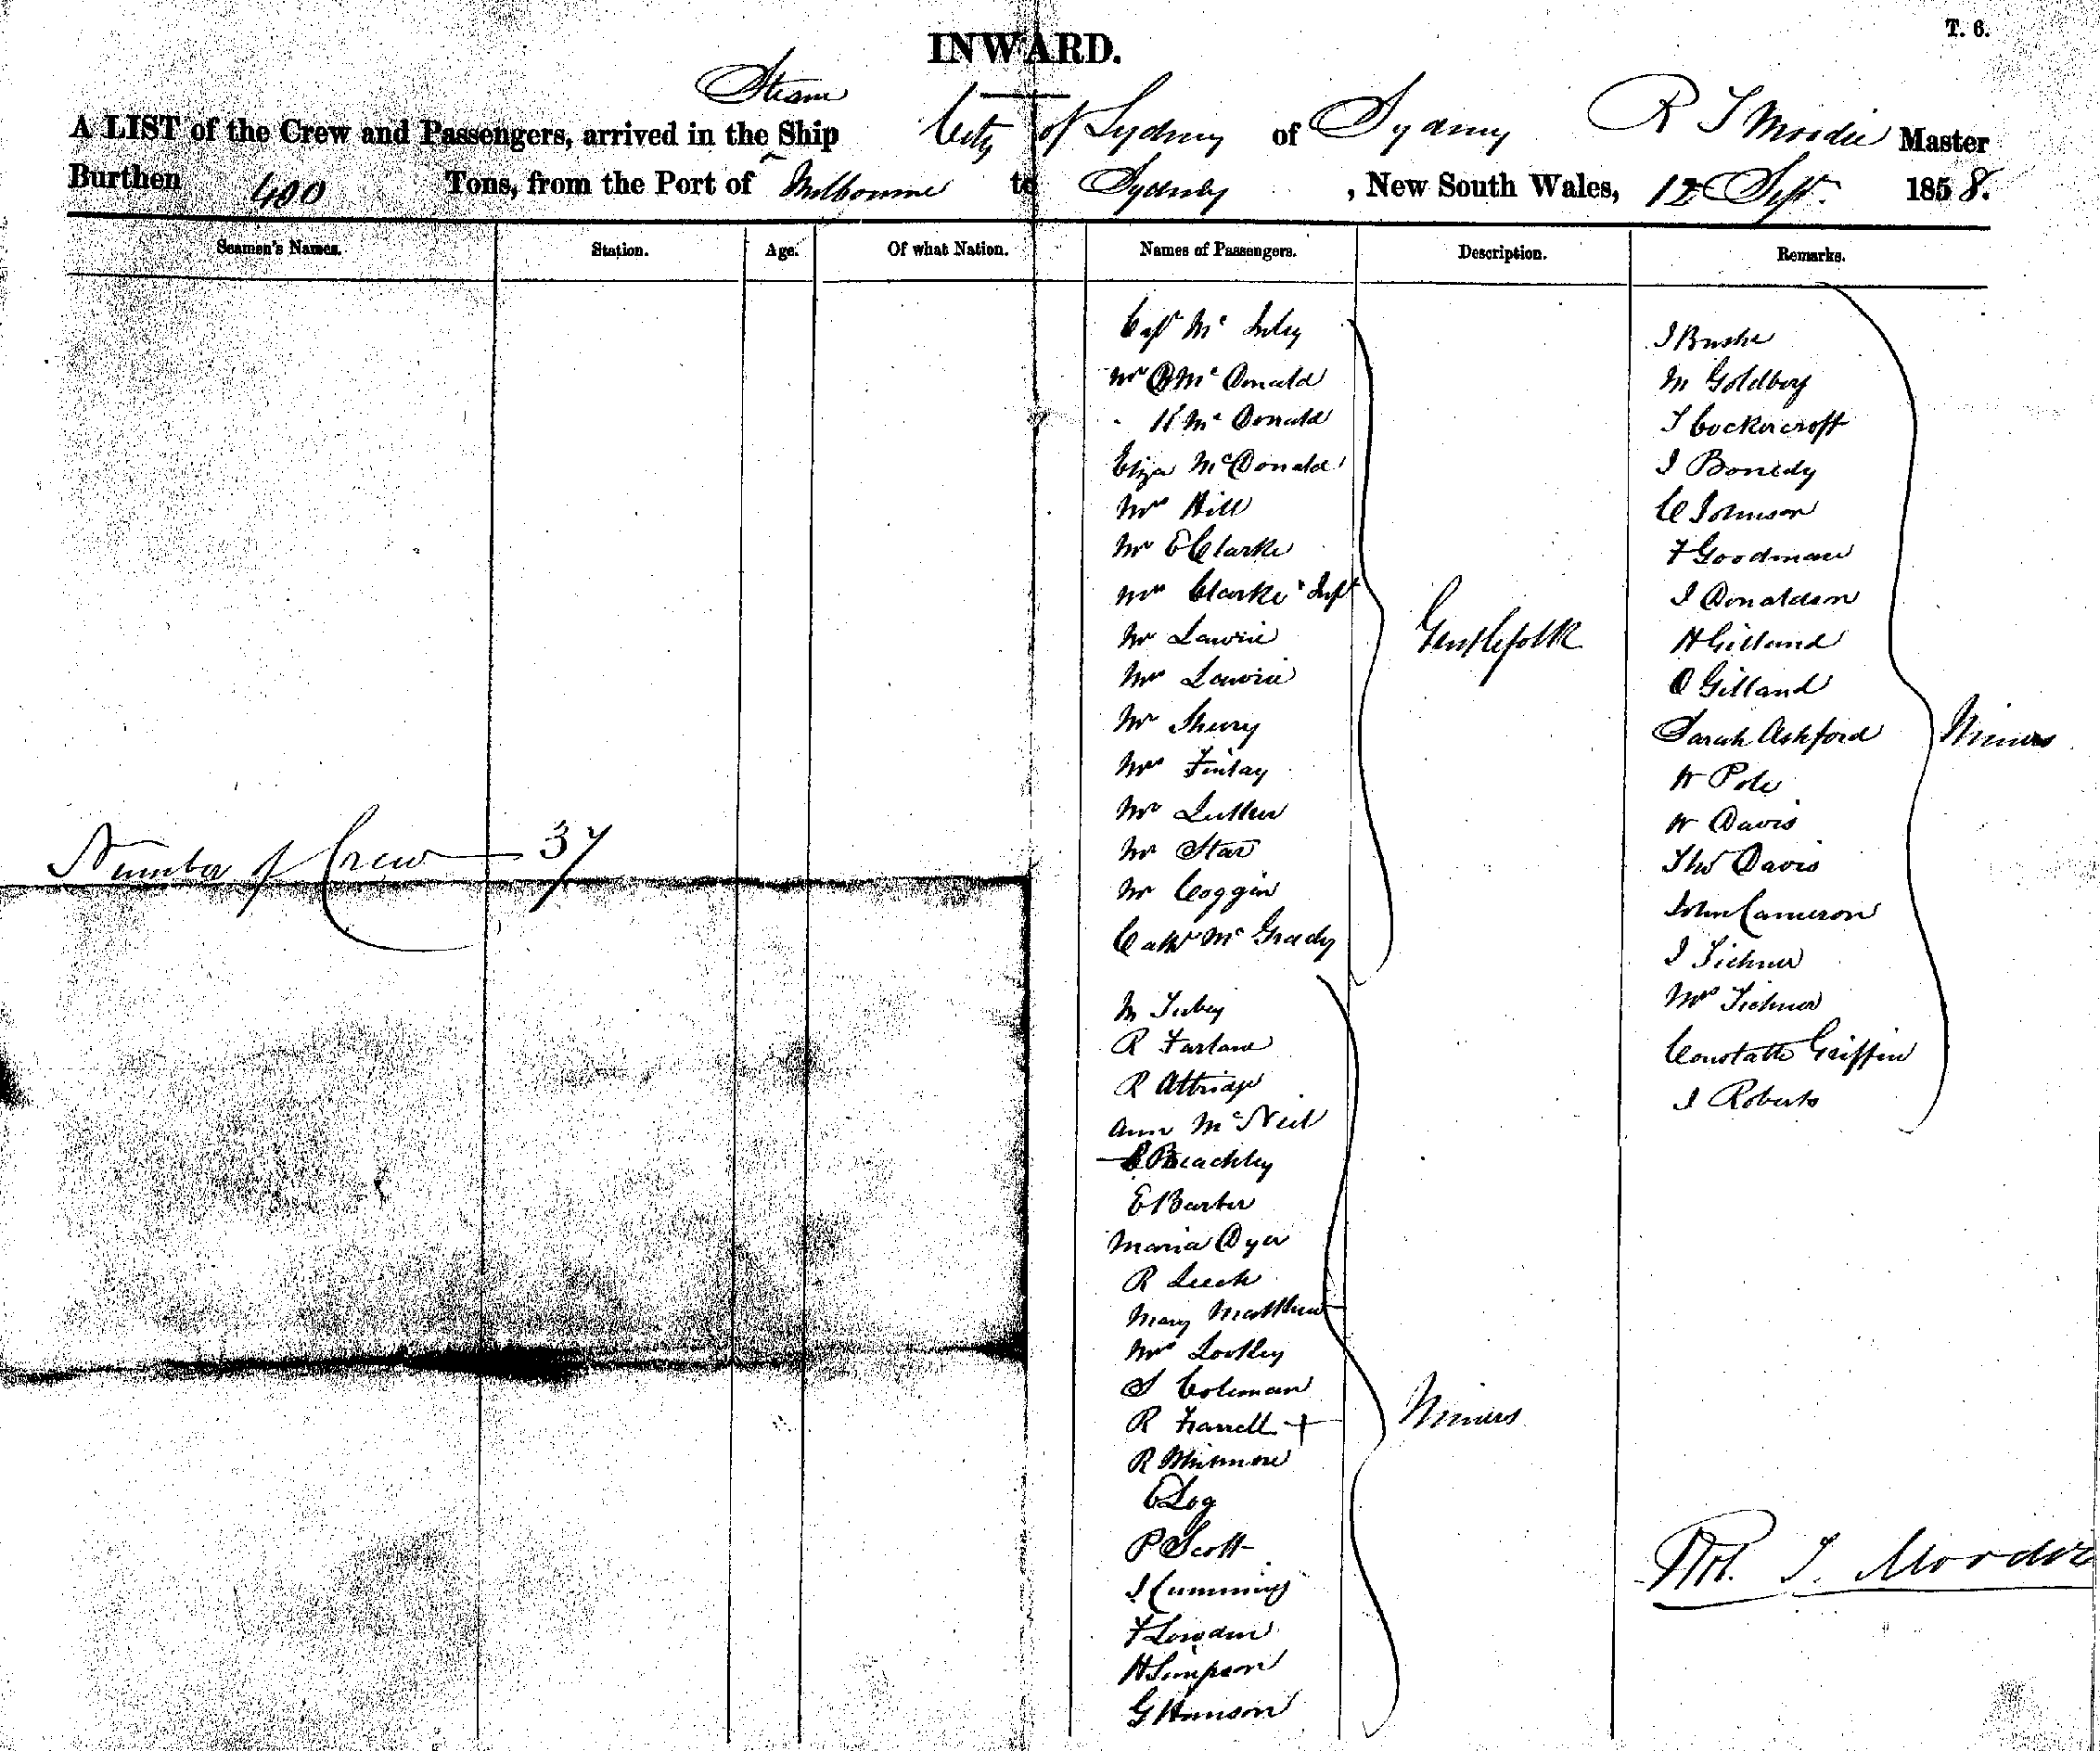 T. 6.
INWARD.
Steam
A LIST of the Crew and Passengers, arrived in the Ship City of Sydney of Sydney R T Moodie Master
Burthen 400 Tons, from the Port of Melbourne to Sydney, New South Wales, 12 Sept. 1858.
Seamen's Names. Station. Age. Of what Nation. Names of Passengers. Description. Remarks.
Number of Crew 37
Capt Mc
Mr D Mc Donald
" H Mc Donald
Eliza McDonald
Mrs Hill
Mr E Clarke
Mrs Clarke & Inft
Mr Lawrie
Mrs Lawrie
Mr
Mrs Finlay
Mr
Mr Star
Mr Coggin
Mc Grady
Gentlefolk
M
R Farlane
R Attridge
Ann McNeil
Beachley
E Barber
Maria Dyer
R Leech
Mary Matthews
Mrs Lockley
S Coleman
R Farrell +
R
P Scott
J Cummings
F Lowden
H Simpson
G Hanson
Miners
J Bushe
M Goldberg
T Cockercroft
J
C Johnson
F Goodman
J Donaldson
H Gilland
D Gilland
Sarah Ashford
W Pole
W Davis
Thos Davis
John Cameron
J Tichner
Mrs Tichner
Griffin
J Roberts
Miners
Rt. T. Moodie